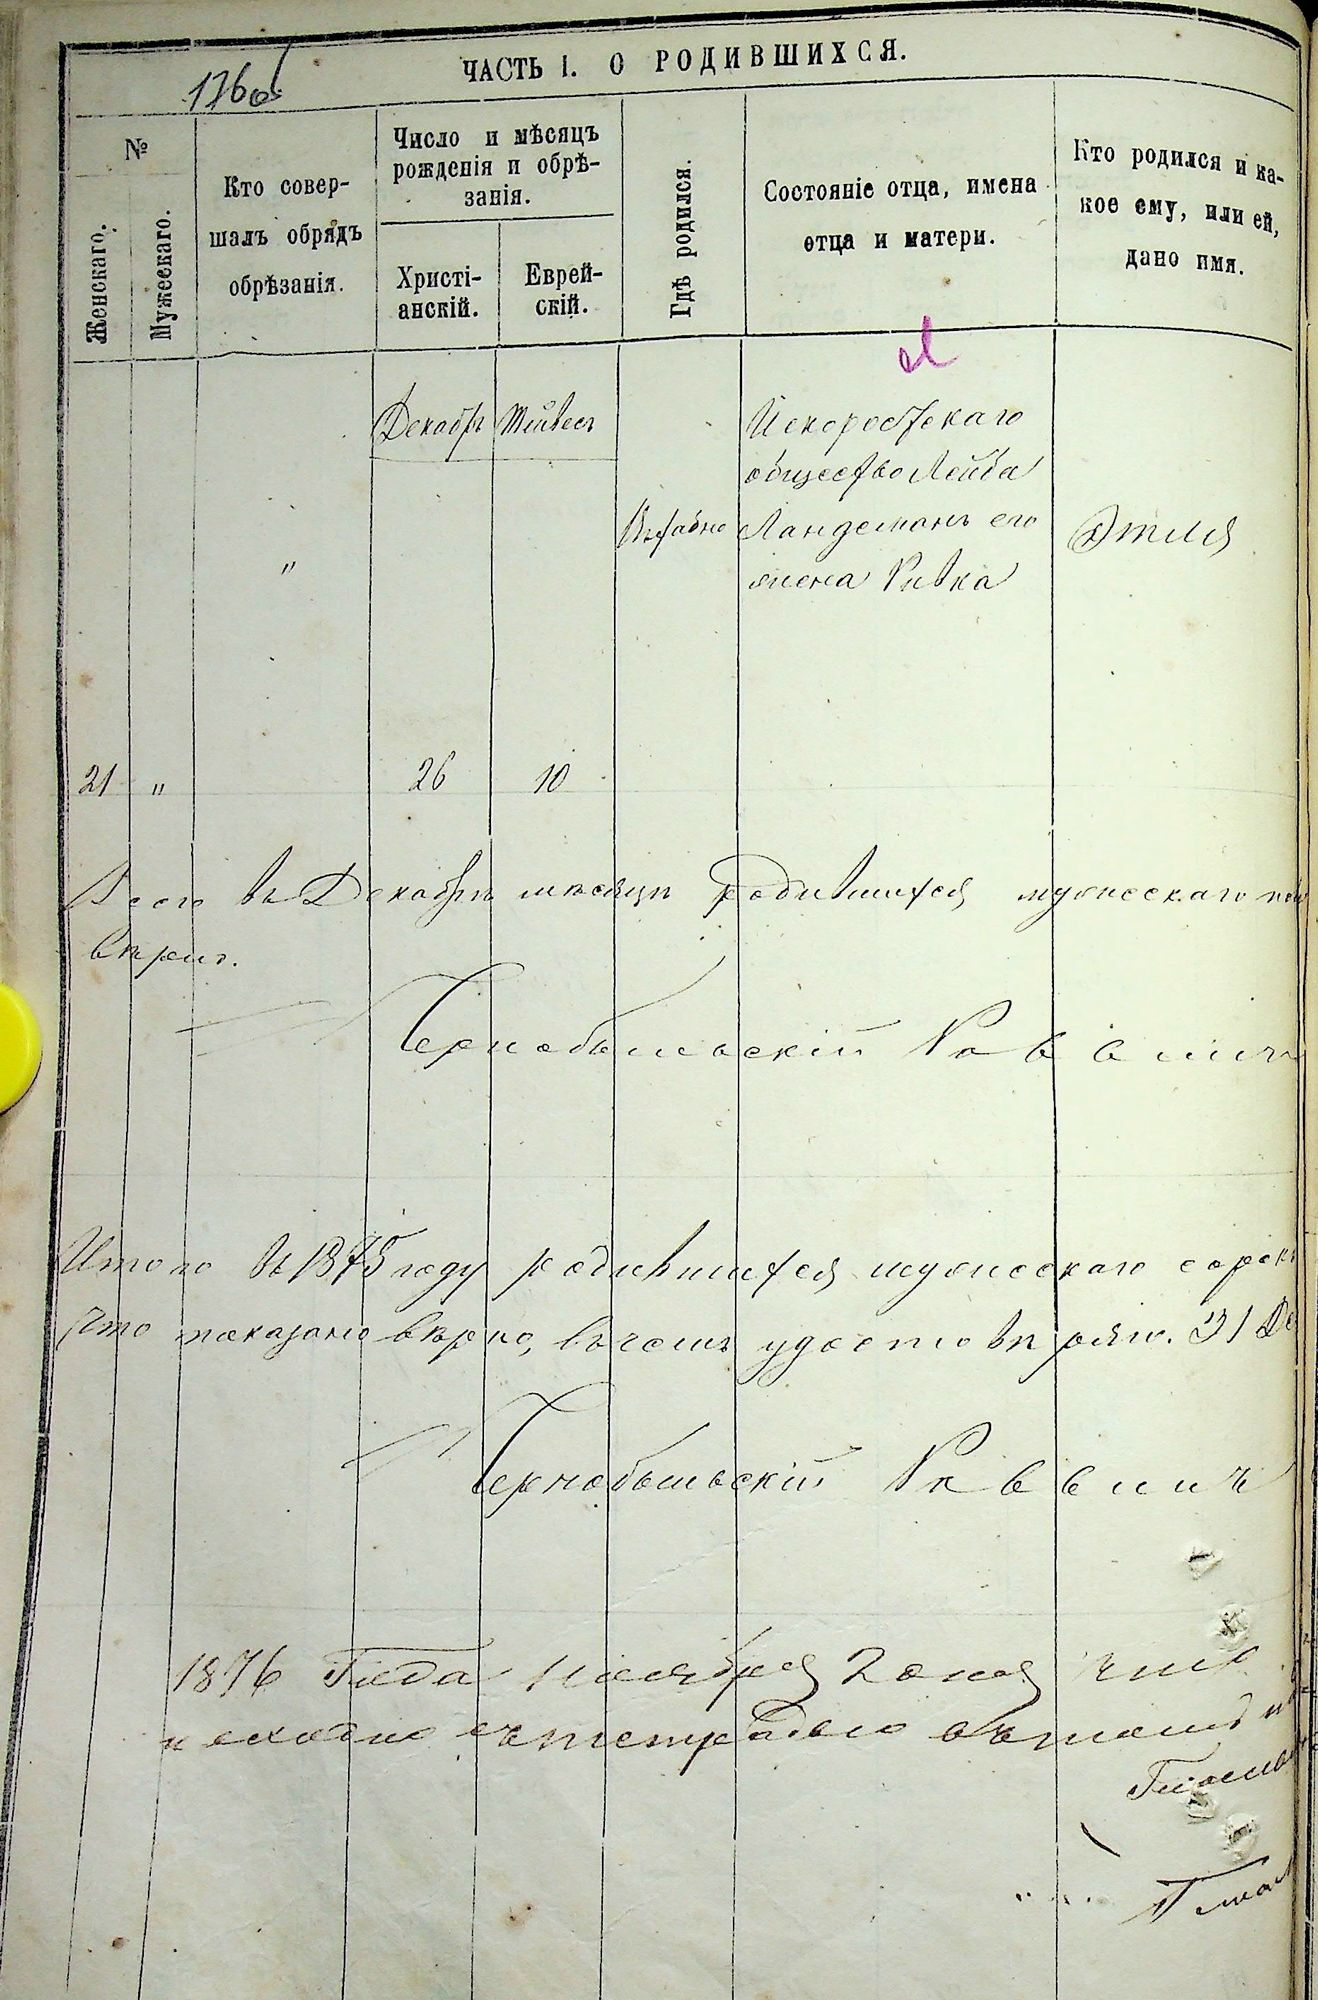 176об
ЧАСТЬ I. О РОДИВШИХСЯ.
№
Женскаго.
Мужескаго.
Кто совер-
шалъ обрядъ
обрѣзанія.
Число и мѣсяцъ
рожденія и обрѣ-
занія.
Христі-
анскій.
Еврей-
скій.
Гдѣ родился.
Состояніе отца, имена
отца и матери.
Кто родился и ка-
кое ему, или ей,
дано имя.
Декабрь Тейвесъ
Искоростскаго
общества Лейба
Ландсманъ его
жена Ривка
Этля
"
21 " 26 10
Всего въ Декабрѣ мѣсяцѣ родившихся мужескаго
вѣрно.
Чернобыльскій Раввинъ
Итого въ 1875 году родившихся мужескаго сорокъ
Что показано вѣрно, въ чемъ удостовѣряю. 31 Де
Чернобыльскій Раввинъ
1876 Года Ноября 2 дня
съ тетрадью